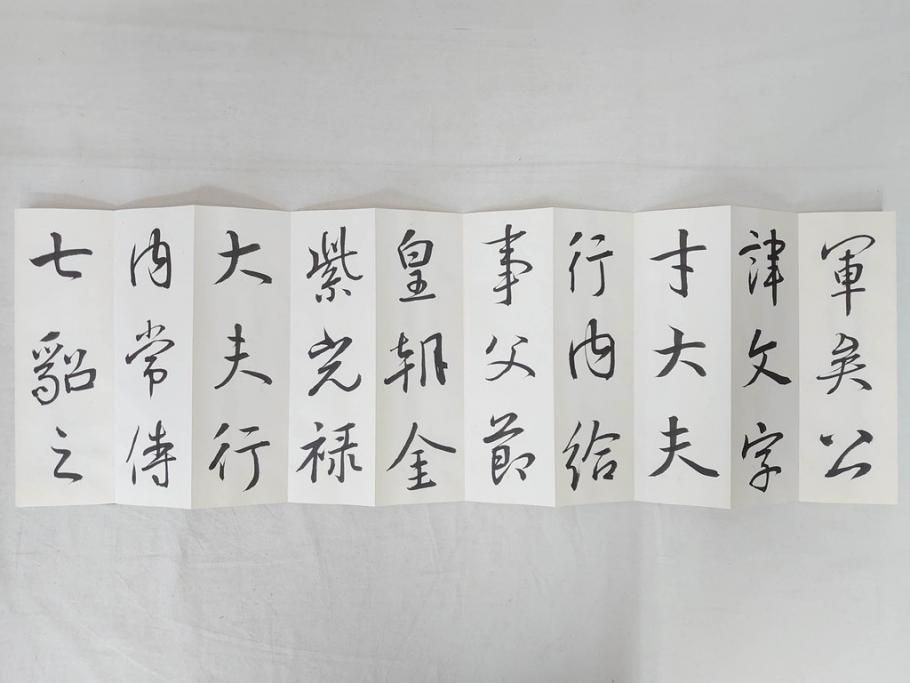 軍矣公
諱文字
才大夫
行内給
事父節
皇朝金
紫光禄
大夫行
内常侍
七貂之